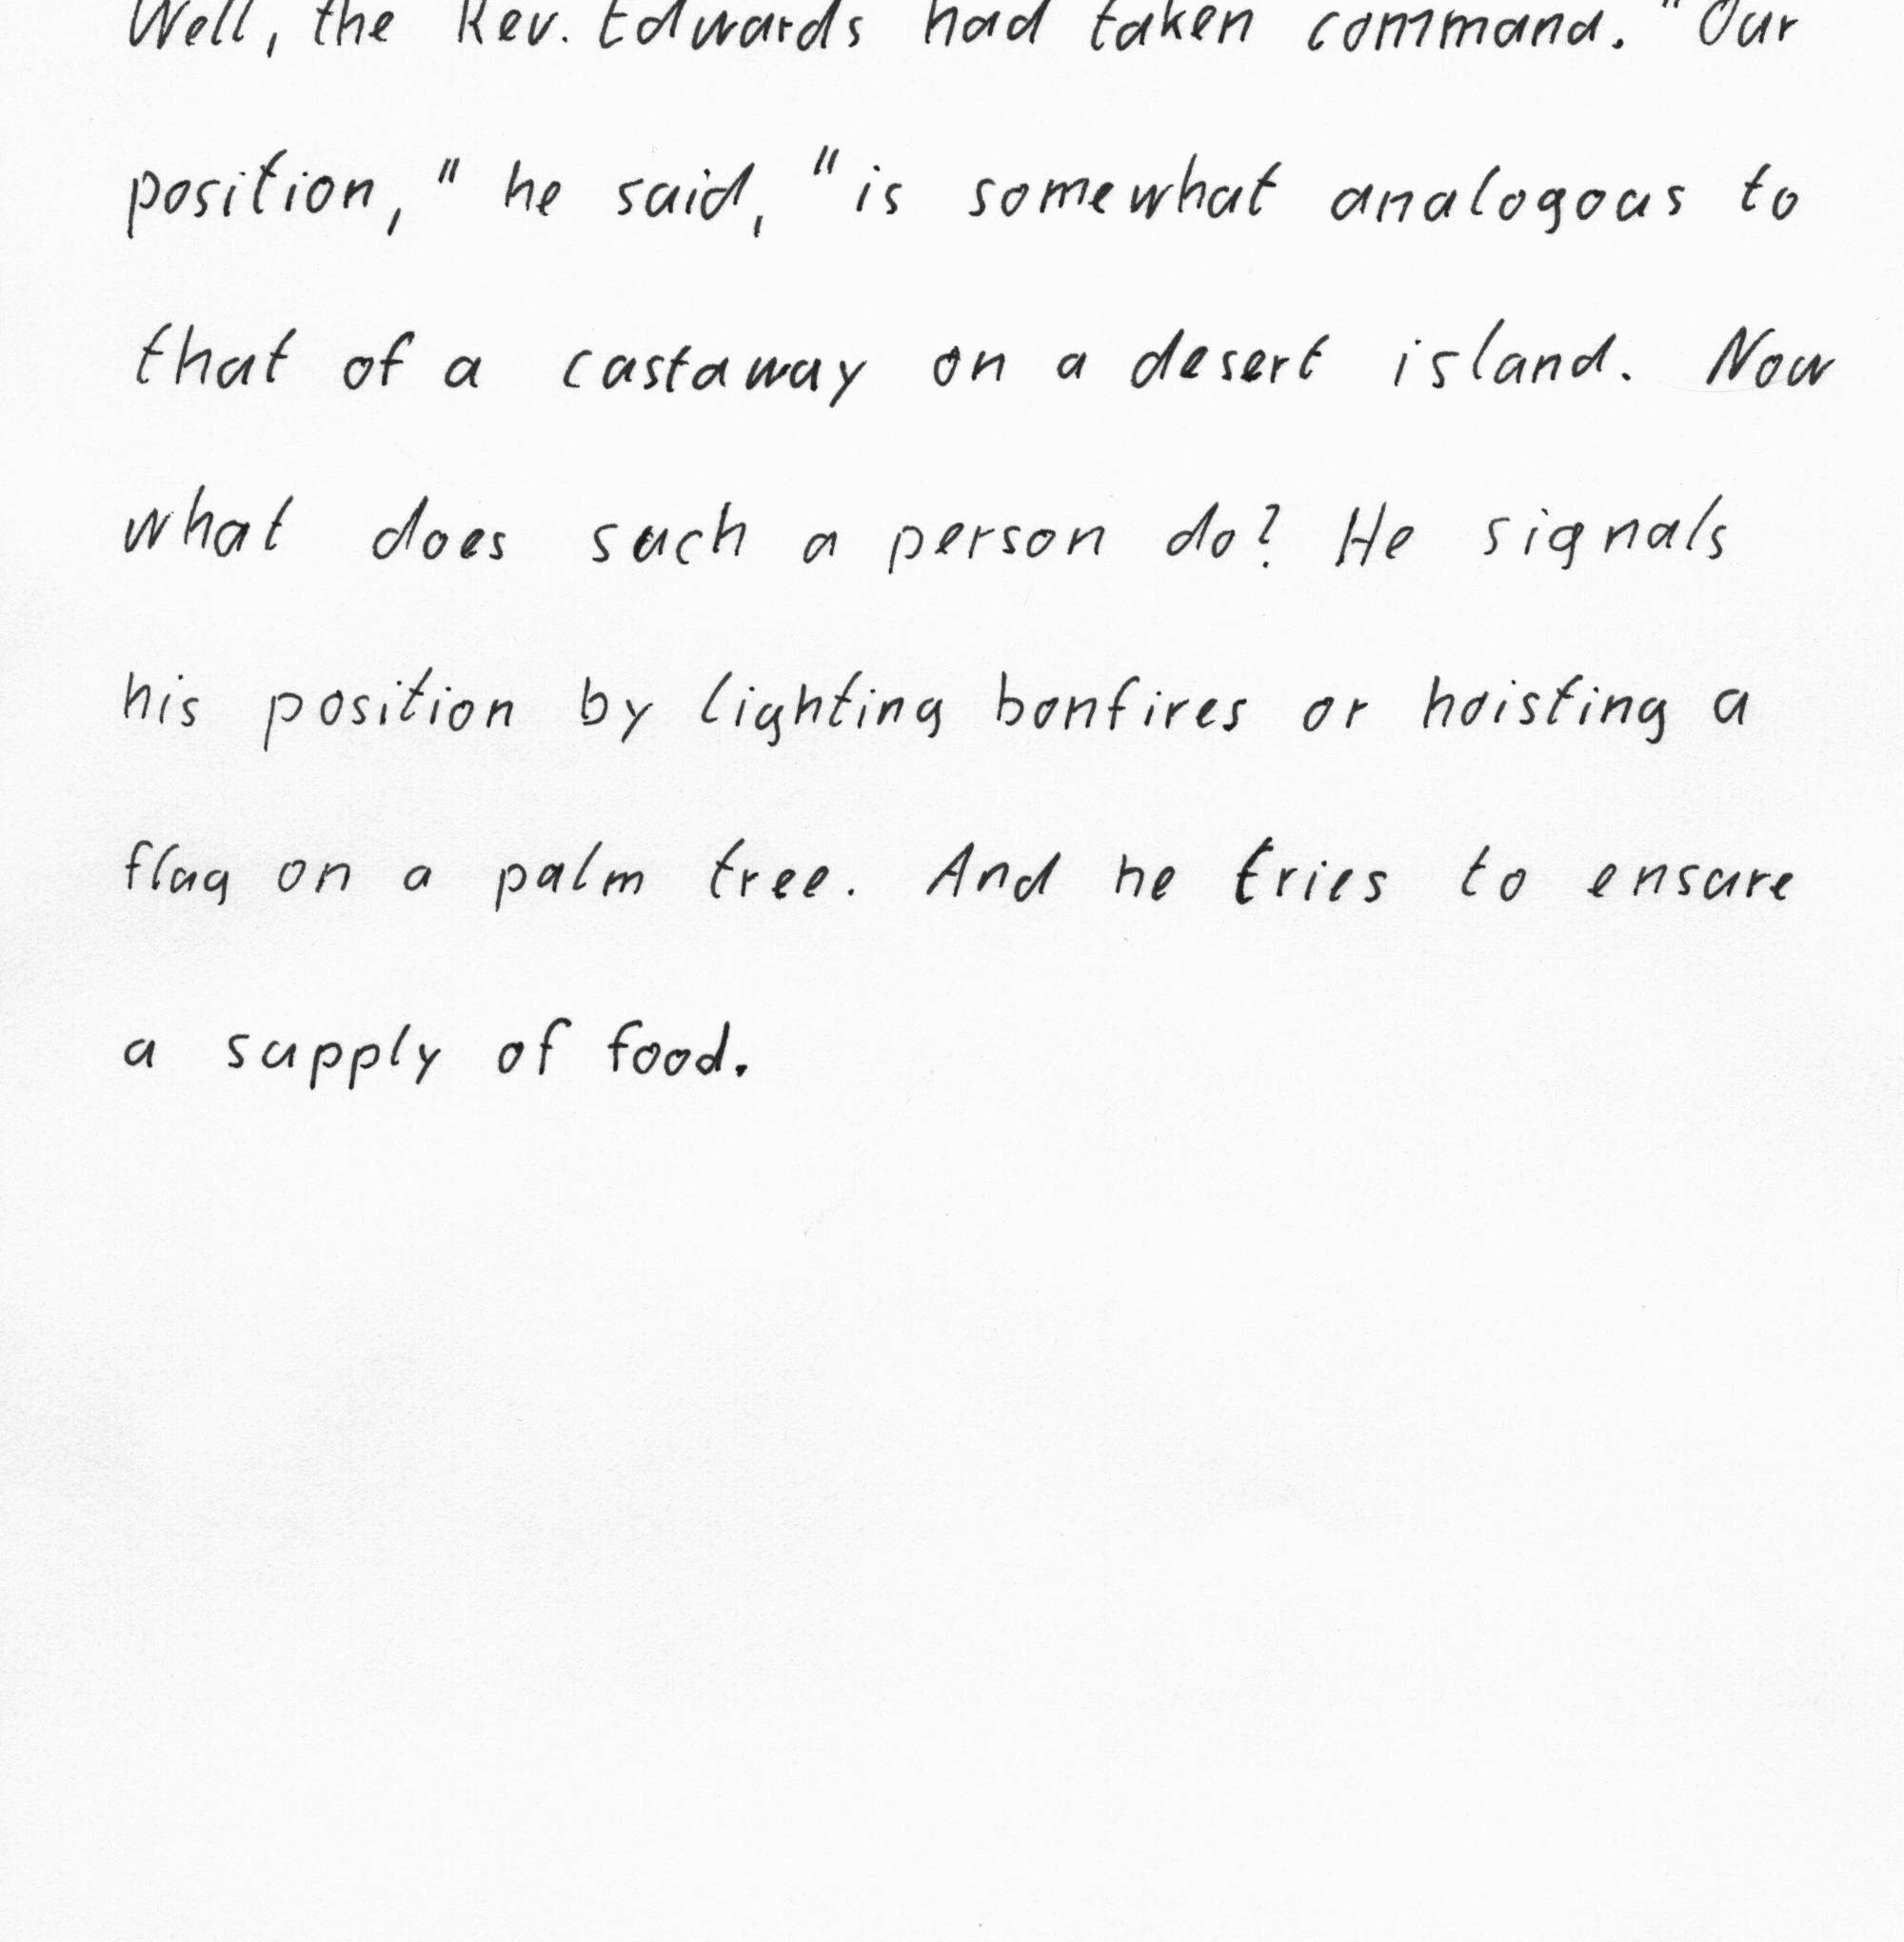 Well, the Rev. Edwards had taken command. "Our
position," he said, "is somewhat analogous to
that of a castaway on a desert island. Now
what does such a person do? He signals
his position by lighting bonfires or hoisting a
flag on a palm tree. And he tries to ensure
a supply of food.